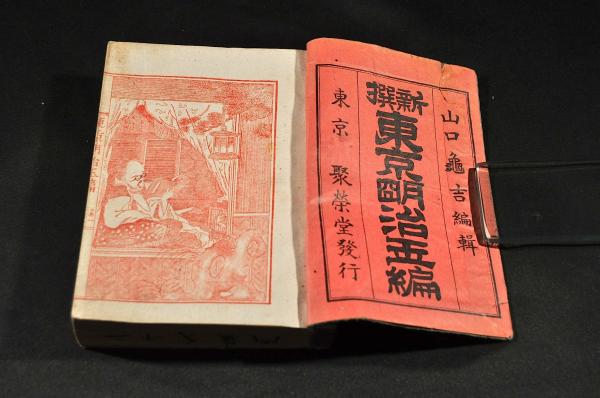 山口龜吉編輯
新撰
東京明治玉編
東京 聚榮堂發行